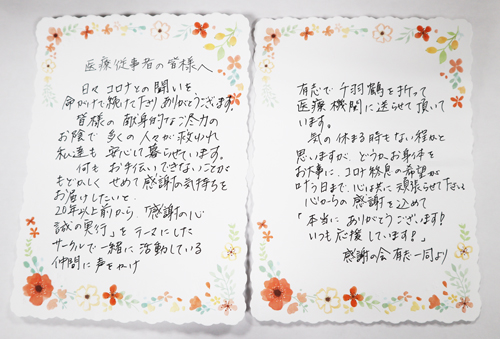 医療従事者の皆様へ
日々コロナとの闘いを
命がけで続けて下さりありがとうございます。
皆様の献身的なご尽力の
お陰で多くの人々が救われ
私達も安心して暮らせています。
何もお手伝いできないことが
もどかしくせめて感謝の気持ちを
お届けしたいと
20年以上前から「感謝の心
誠の実行」をテーマにした
サークルで一緒に活動している
仲間に声をかけ
有志で千羽鶴を折って
医療機関に送らせて頂いて
います。
気の休まる時もない程かと
思いますが、どうかお身体を
お大事に、コロナ終息の希望が
叶う日まで、心は共に頑張らせて下さい
心からの感謝を込めて
「本当にありがとうございます!
いつも応援しています!」
感謝の会 有志一同より